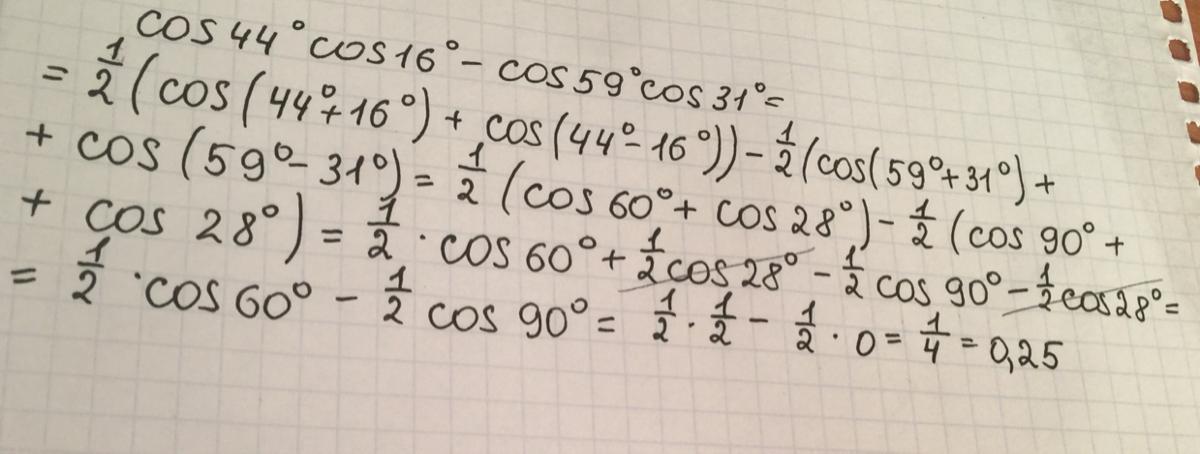 cos 44° cos 16° - cos 59° cos 31° =
= 1/2 (cos (44° + 16°) + cos (44° - 16°)) - 1/2 (cos (59° + 31°) +
+ cos (59° - 31°) = 1/2 (cos 60° + cos 28°) - 1/2 (cos 90° +
+ cos 28°) = 1/2 · cos 60° + 1/2 cos 28° - 1/2 cos 90° - 1/2 cos 28° =
= 1/2 · cos 60° - 1/2 cos 90° = 1/2 · 1/2 - 1/2 · 0 = 1/4 = 0,25